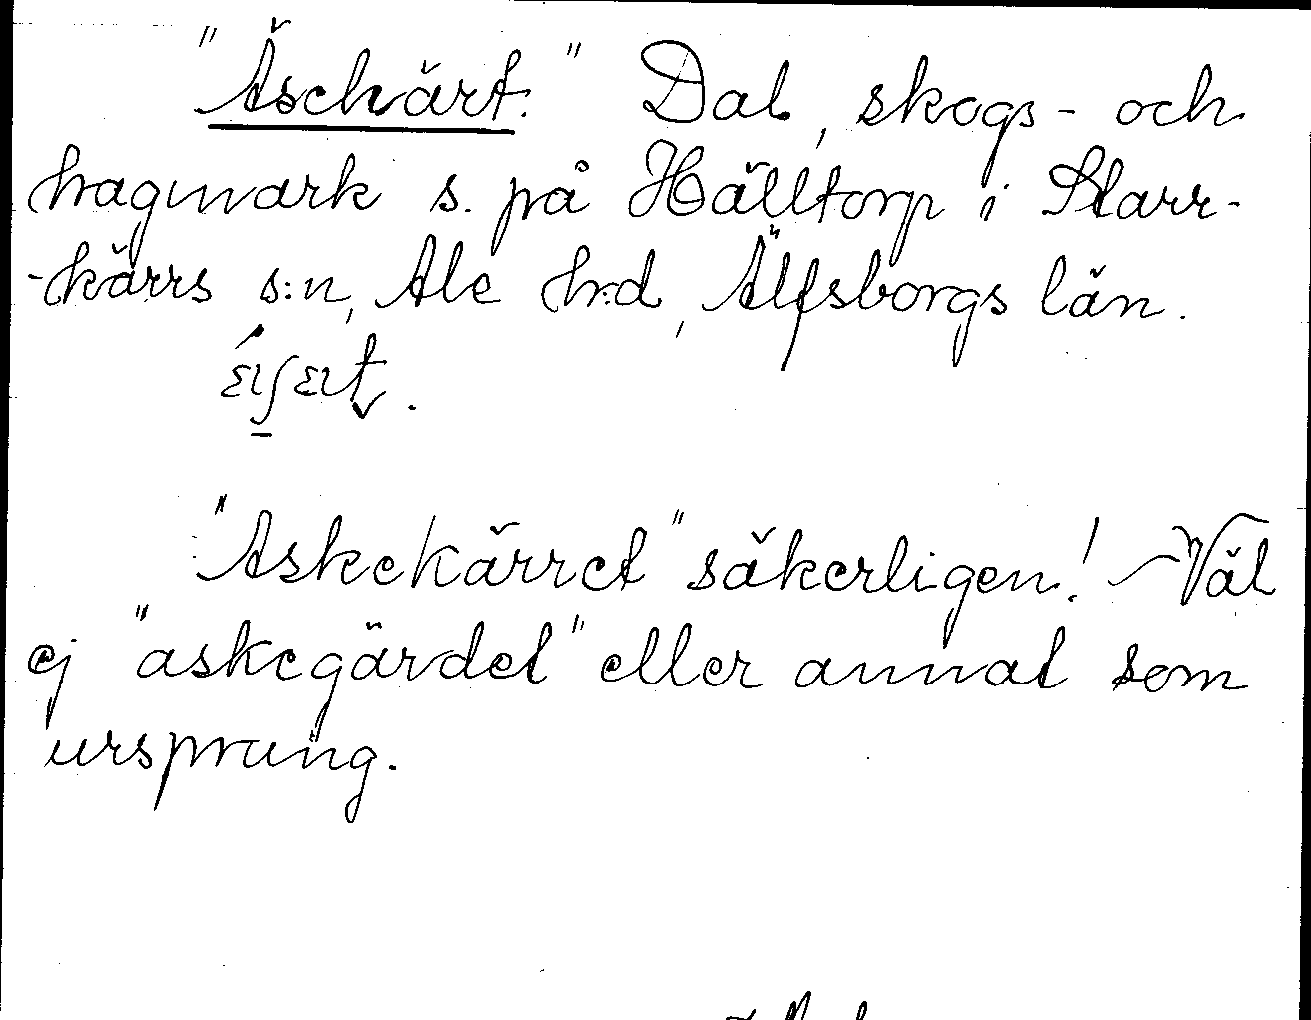 "Äschärt." Dal, skogs- och
hagmark s. på Hälltorp i Starr-
-kärrs s:n, Ale h:d, Älfsborgs län.
"Askekärret" säkerligen! – Väl
ej "askegärdet" eller annat som
ursprung.